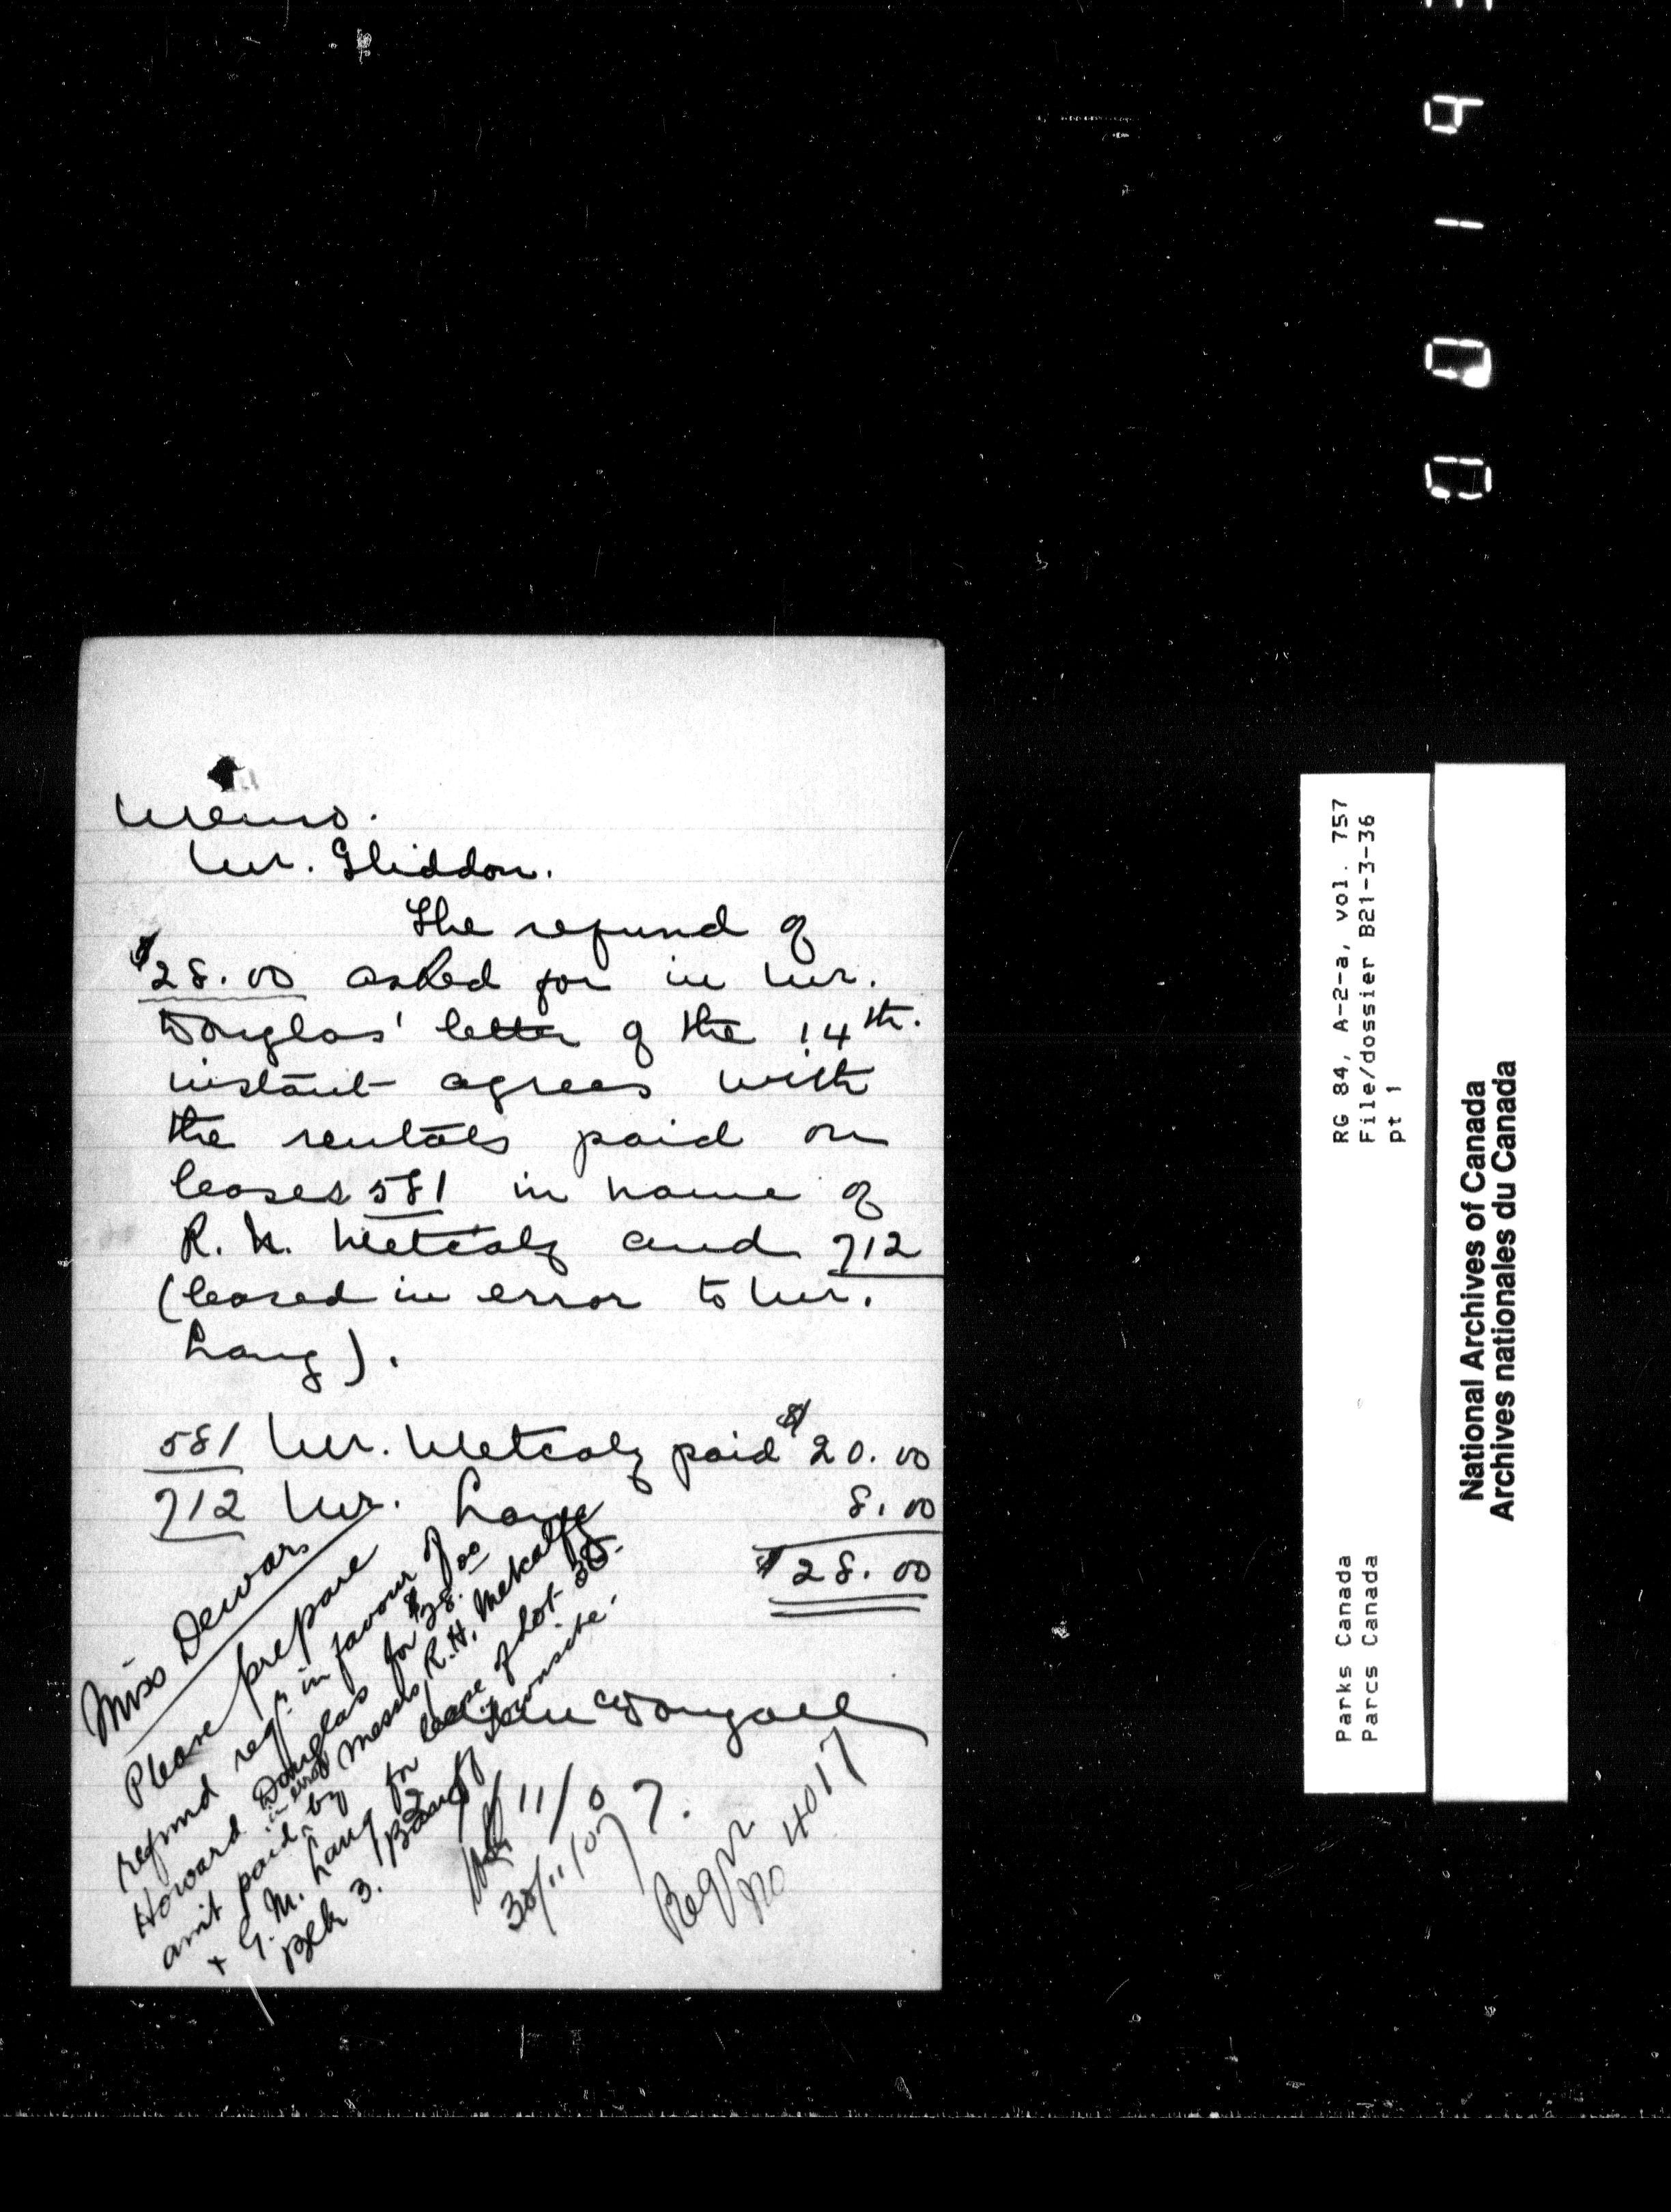 Memo.
Mr. Gliddon.
The refund of
$28.00 asked for in Mr.
Douglas' letter of the 14th.
instant agrees with
the rentals paid on
leases 581 in name of
R. H. Metcalf and 712
(leased in error to Mr.
Lang).
581 Mr. Metcalf paid $20.00
712 Mr. Lang 8.00
$28.00
McDougall
11/07.
Miss Dewar
Please prepare
refund reqn. in favour of
Howard Douglas for $28.00
amt paid in error by Messrs R. H. Metcalfe
+ G. M. Lang for lease of Lot 38
Blk 3. Banff Townsite.
30/11/07
Reqn
No 4017
RG 84, A-2-a, vol. 757
File/dossier B21-3-36
pt 1
Parks Canada
Parcs Canada
National Archives of Canada
Archives nationales du Canada